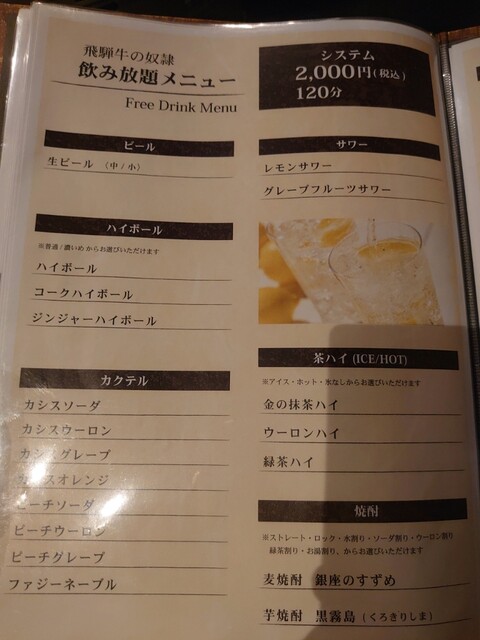 飛騨牛の奴隷
飲み放題メニュー
Free Drink Menu
ビール
生ビール （中 / 小）
ハイボール
※普通 / 濃いめ からお選びいただけます
ハイボール
コークハイボール
ジンジャーハイボール
カクテル
カシスソーダ
カシスウーロン
カシスグレープ
カシスオレンジ
ピーチソーダ
ピーチウーロン
ピーチグレープ
ファジーネーブル
システム
2,000円(税込)
120分
サワー
レモンサワー
グレープフルーツサワー
茶ハイ (ICE/HOT)
※アイス・ホット・氷なしからお選びいただけます
金の抹茶ハイ
ウーロンハイ
緑茶ハイ
焼酎
※ストレート・ロック・水割り・ソーダ割り・ウーロン割り
緑茶割り・お湯割り、からお選びいただけます
麦焼酎 銀座のすずめ
芋焼酎 黒霧島 (くろきりしま)